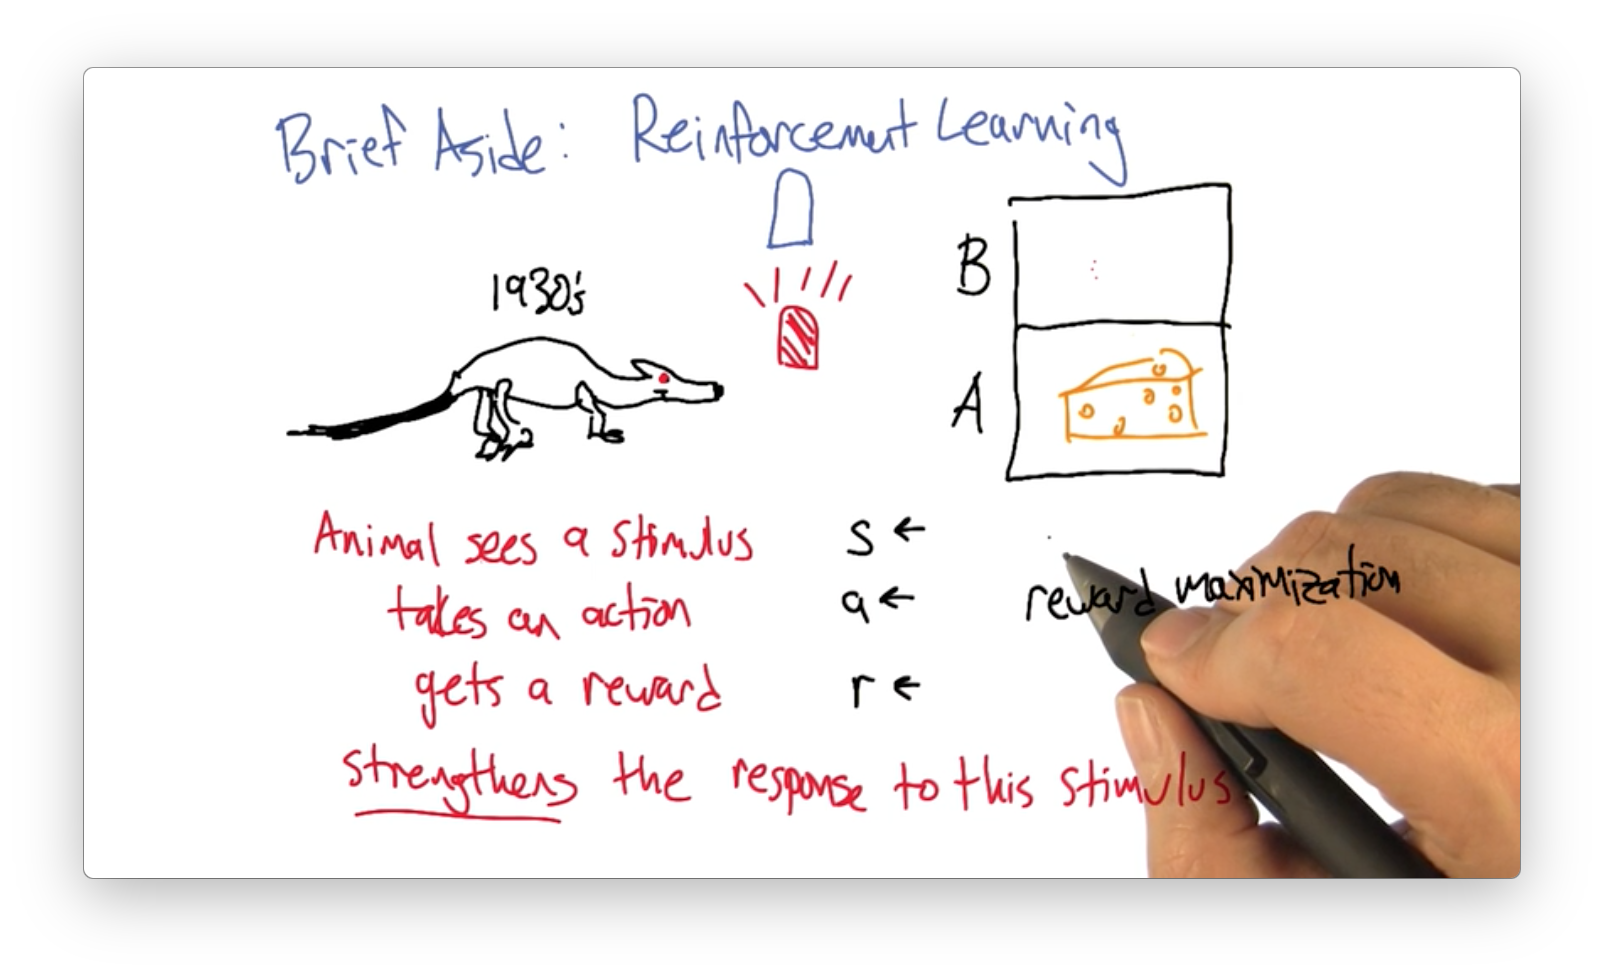 Brief Aside: Reinforcement Learning
1930's
B
A
Animal sees a stimulus s ←
takes an action a ←
reward maximization
gets a reward r ←
strengthens the response to this stimulus